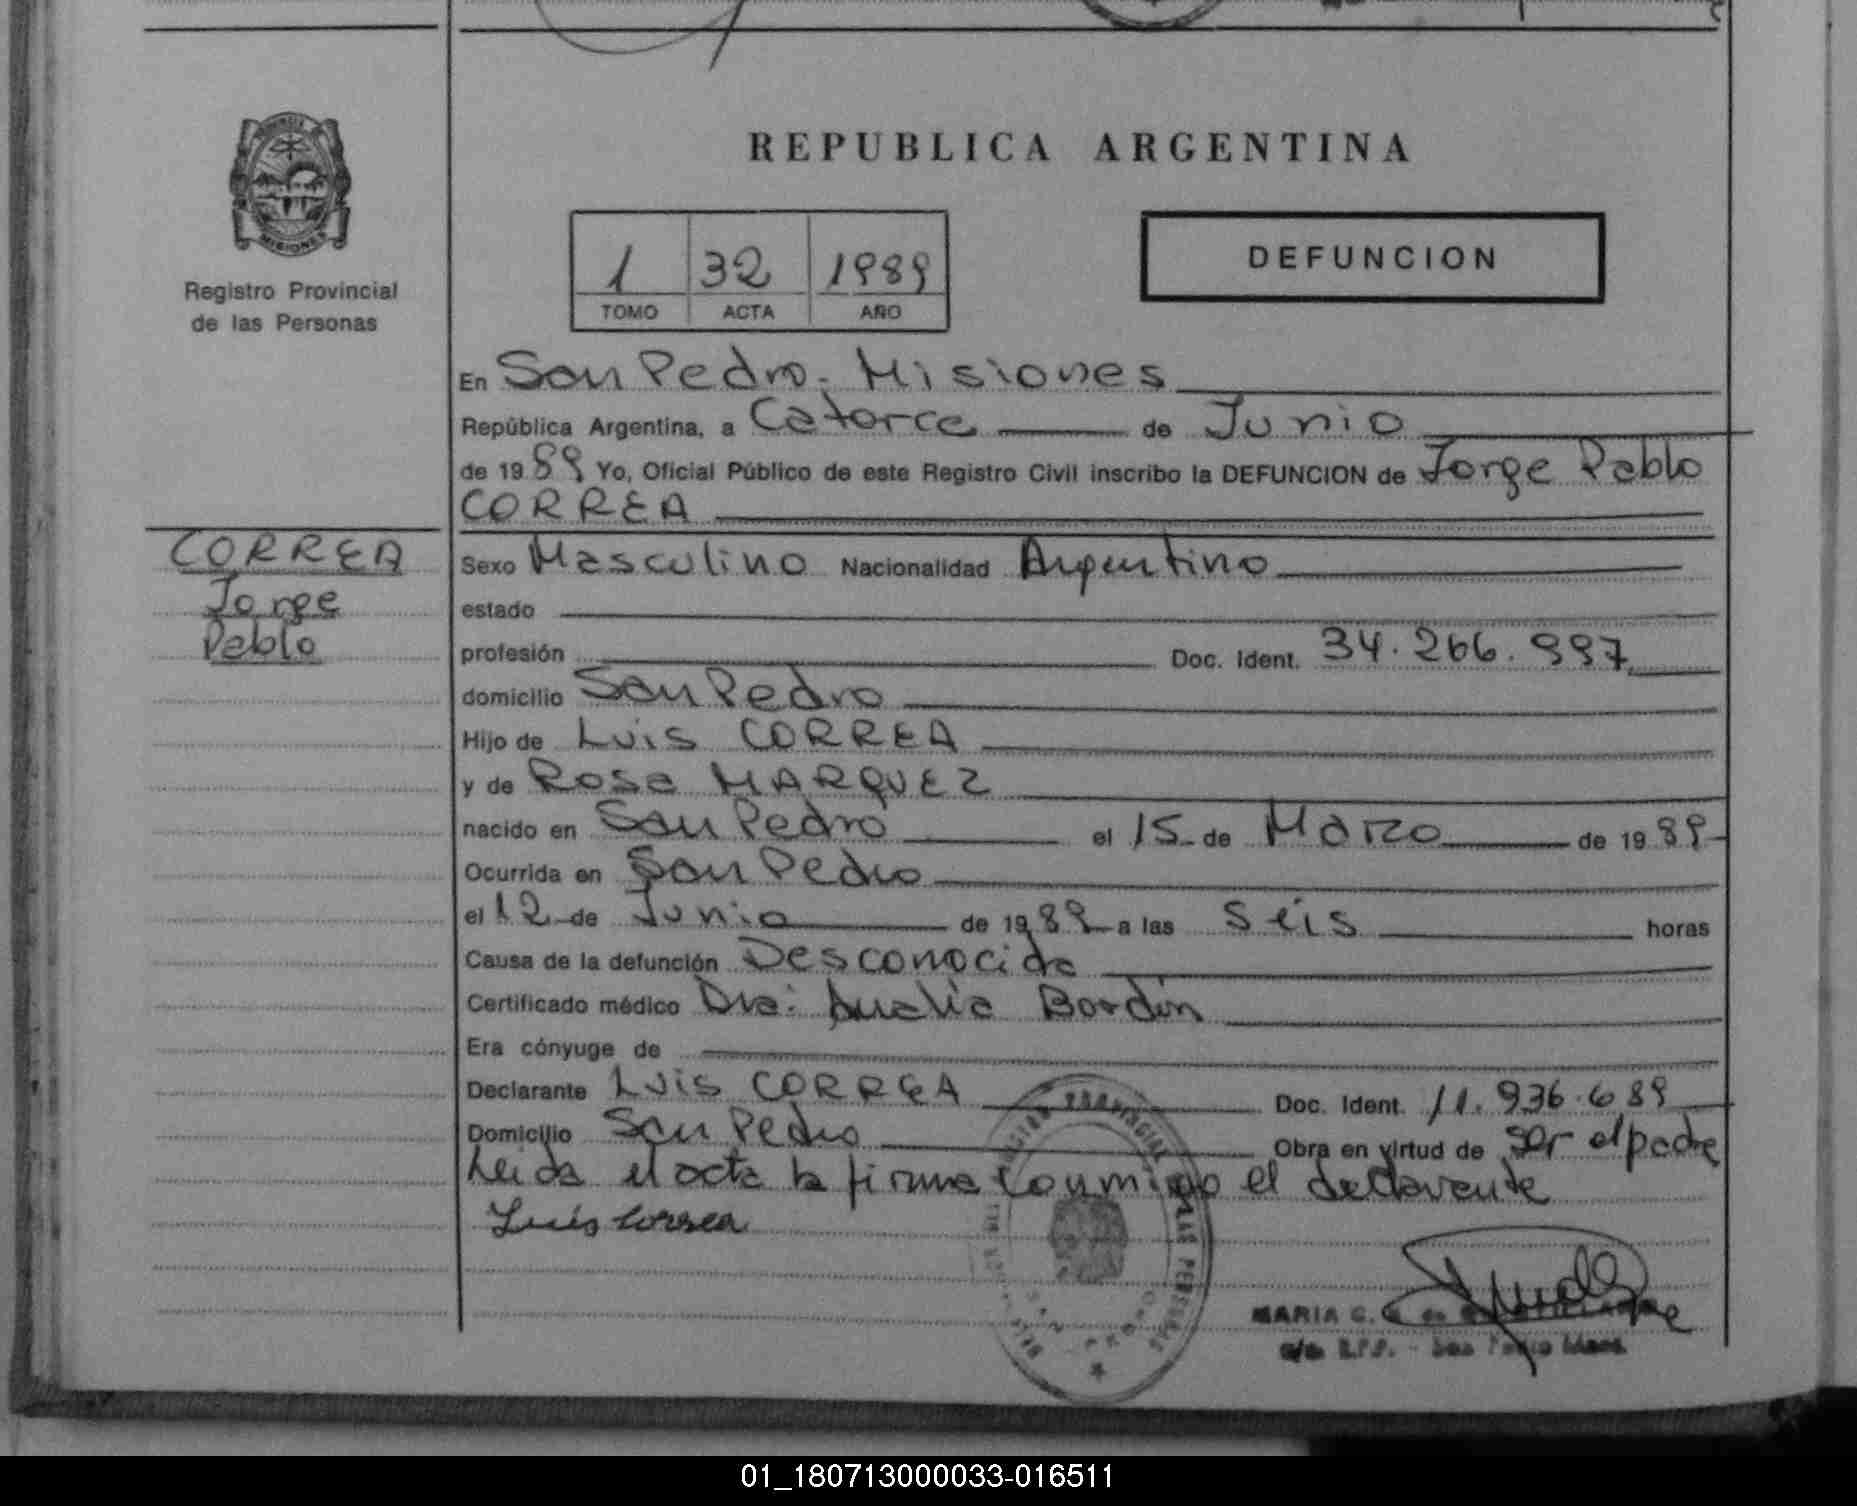 REPUBLICA ARGENTINA
1 32 1989
TOMO ACTA AÑO
DEFUNCION
MISIONES
Registro Provincial
de las Personas
En San Pedro. Misiones
República Argentina, a Catorce de Junio
de 1989 Yo, Oficial Público de este Registro Civil inscribo la DEFUNCION de Jorge Pablo
CORREA
CORREA
Jorge
Pablo
Sexo Masculino Nacionalidad Argentino
estado
profesión Doc. Ident. 34.266.997
domicilio San Pedro
Hijo de Luis CORREA
y de Rosa MARQUEZ
nacido en San Pedro el 15 de Marzo de 1989
Ocurrida en San Pedro
el 12 de Junio de 1989 a las seis horas
Causa de la defunción Desconocida
Certificado médico Dra: Analía Bordín
Era cónyuge de
Declarante Luis CORREA Doc. Ident. 11.936.689
Domicilio San Pedro Obra en virtud de ser el padre
Leida el acta la firma conmigo el declarante
Luis Correa
MARIA C.
01_180713000033-016511